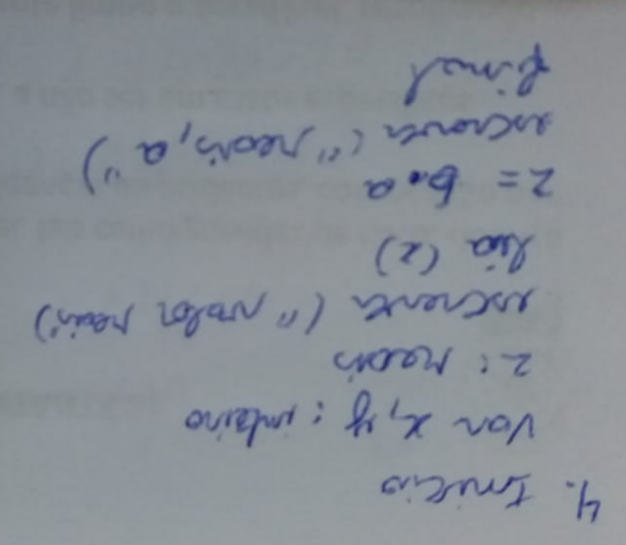 4. Início
Var x, y: inteiro
z: reais
escreva ("valor reais")
leia (z)
z = b.a
escreva ("reais, a")
final